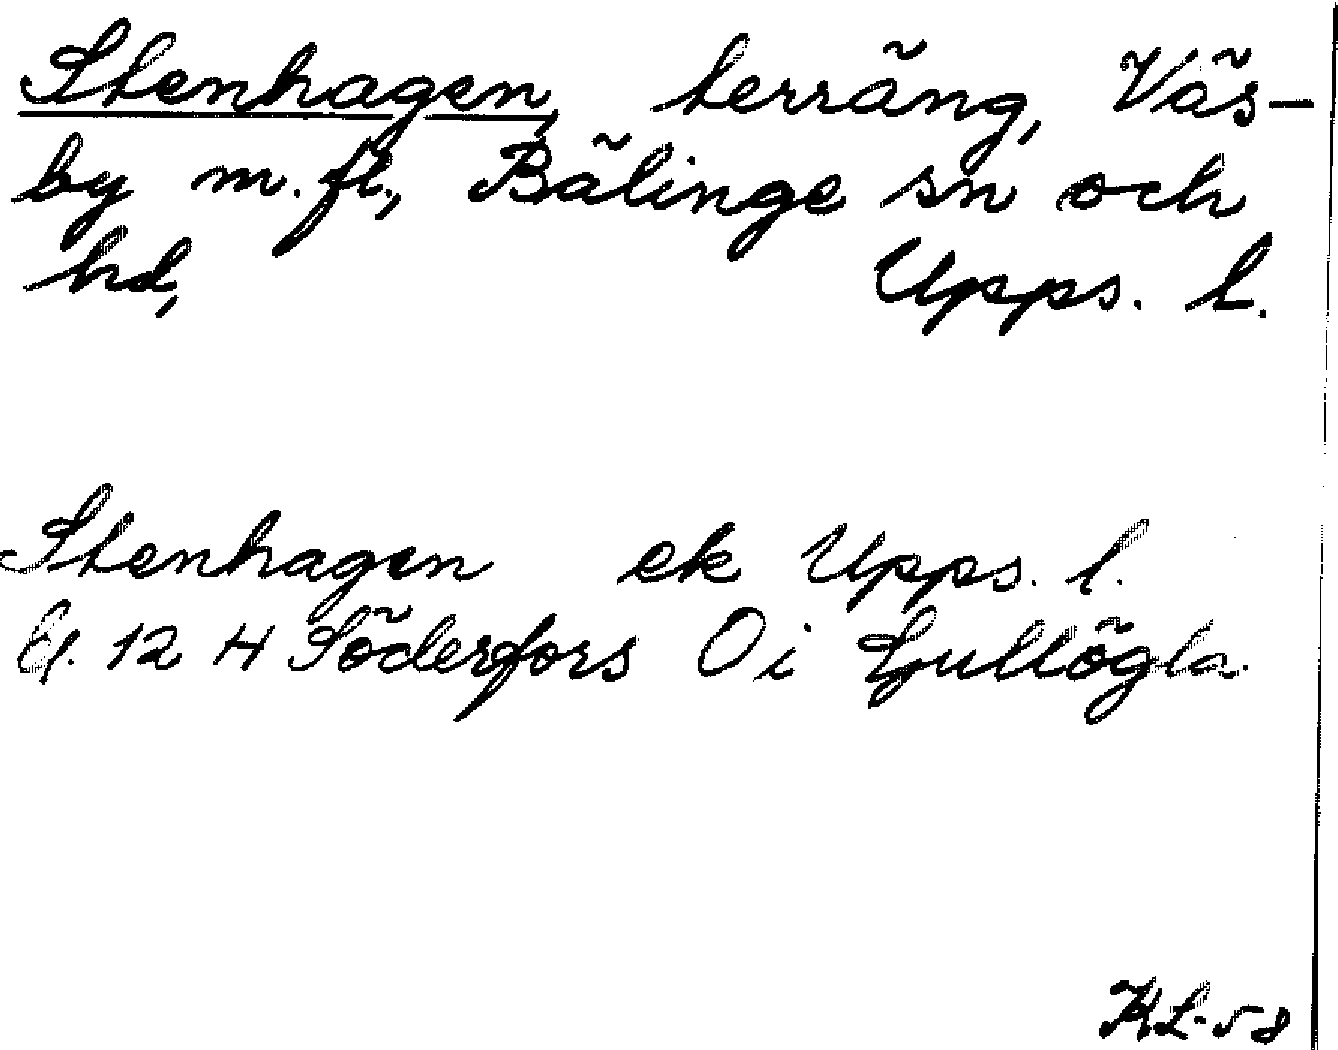 Stenhagen, terräng, Väs-
by m. fl., Bälinge sn och
hd, Upps. l.
Stenhagen ek Upps. l.
Bl. 12 H Söderfors O i Gullögla.
KL-58